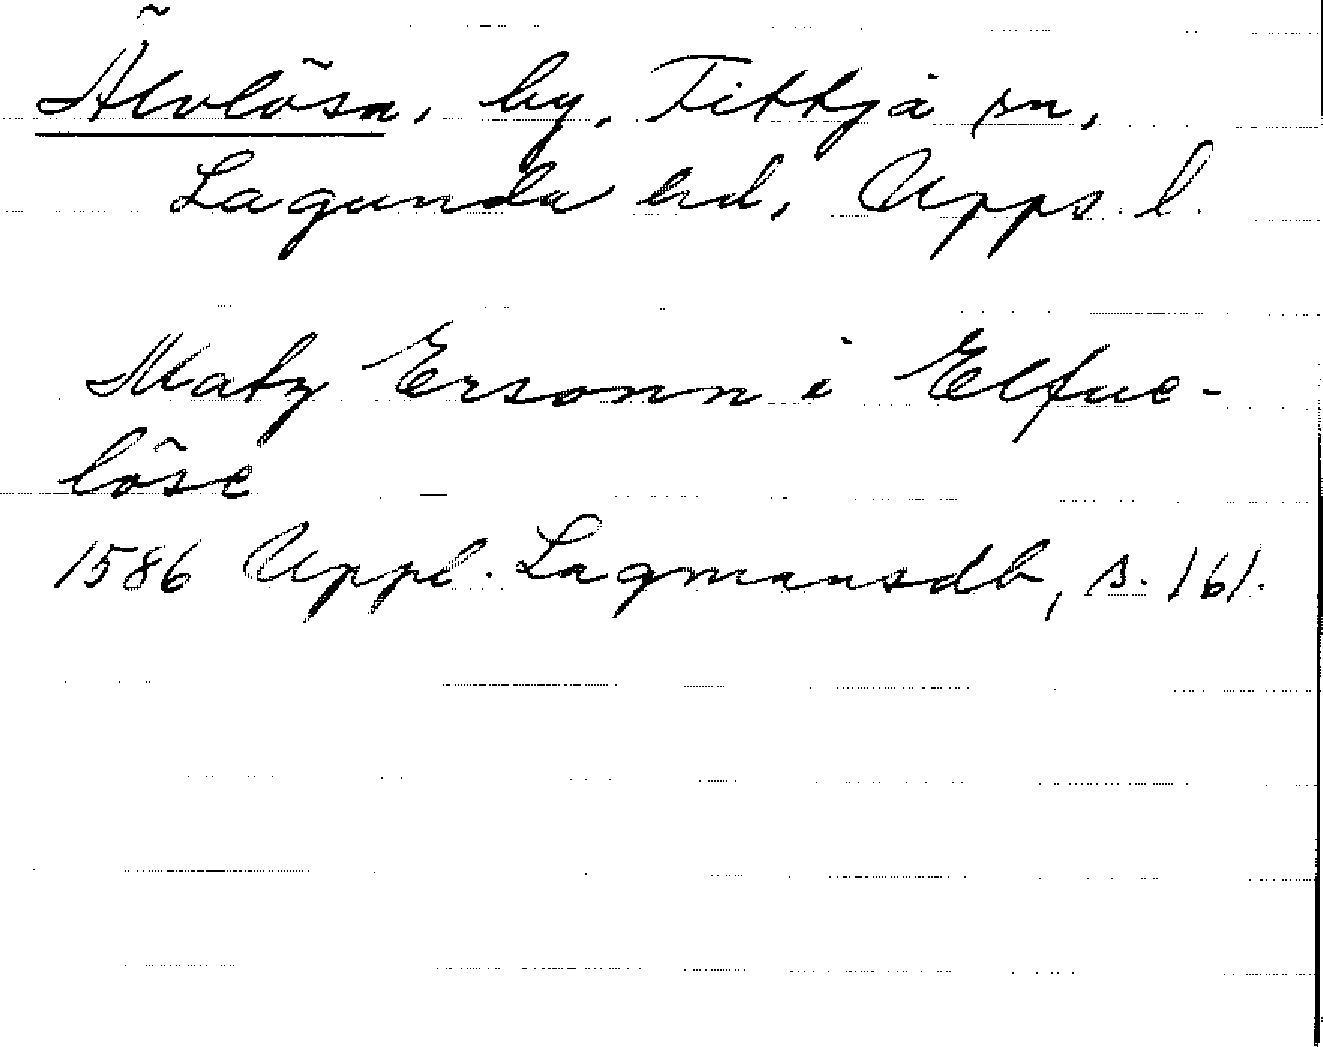 Älvlösa, by, Fittja sn,
Lagunda hd, Upps. l.
Matz Ersonn i Elfue-
löse
1586 Uppl. Lagmansdb, s. 161.